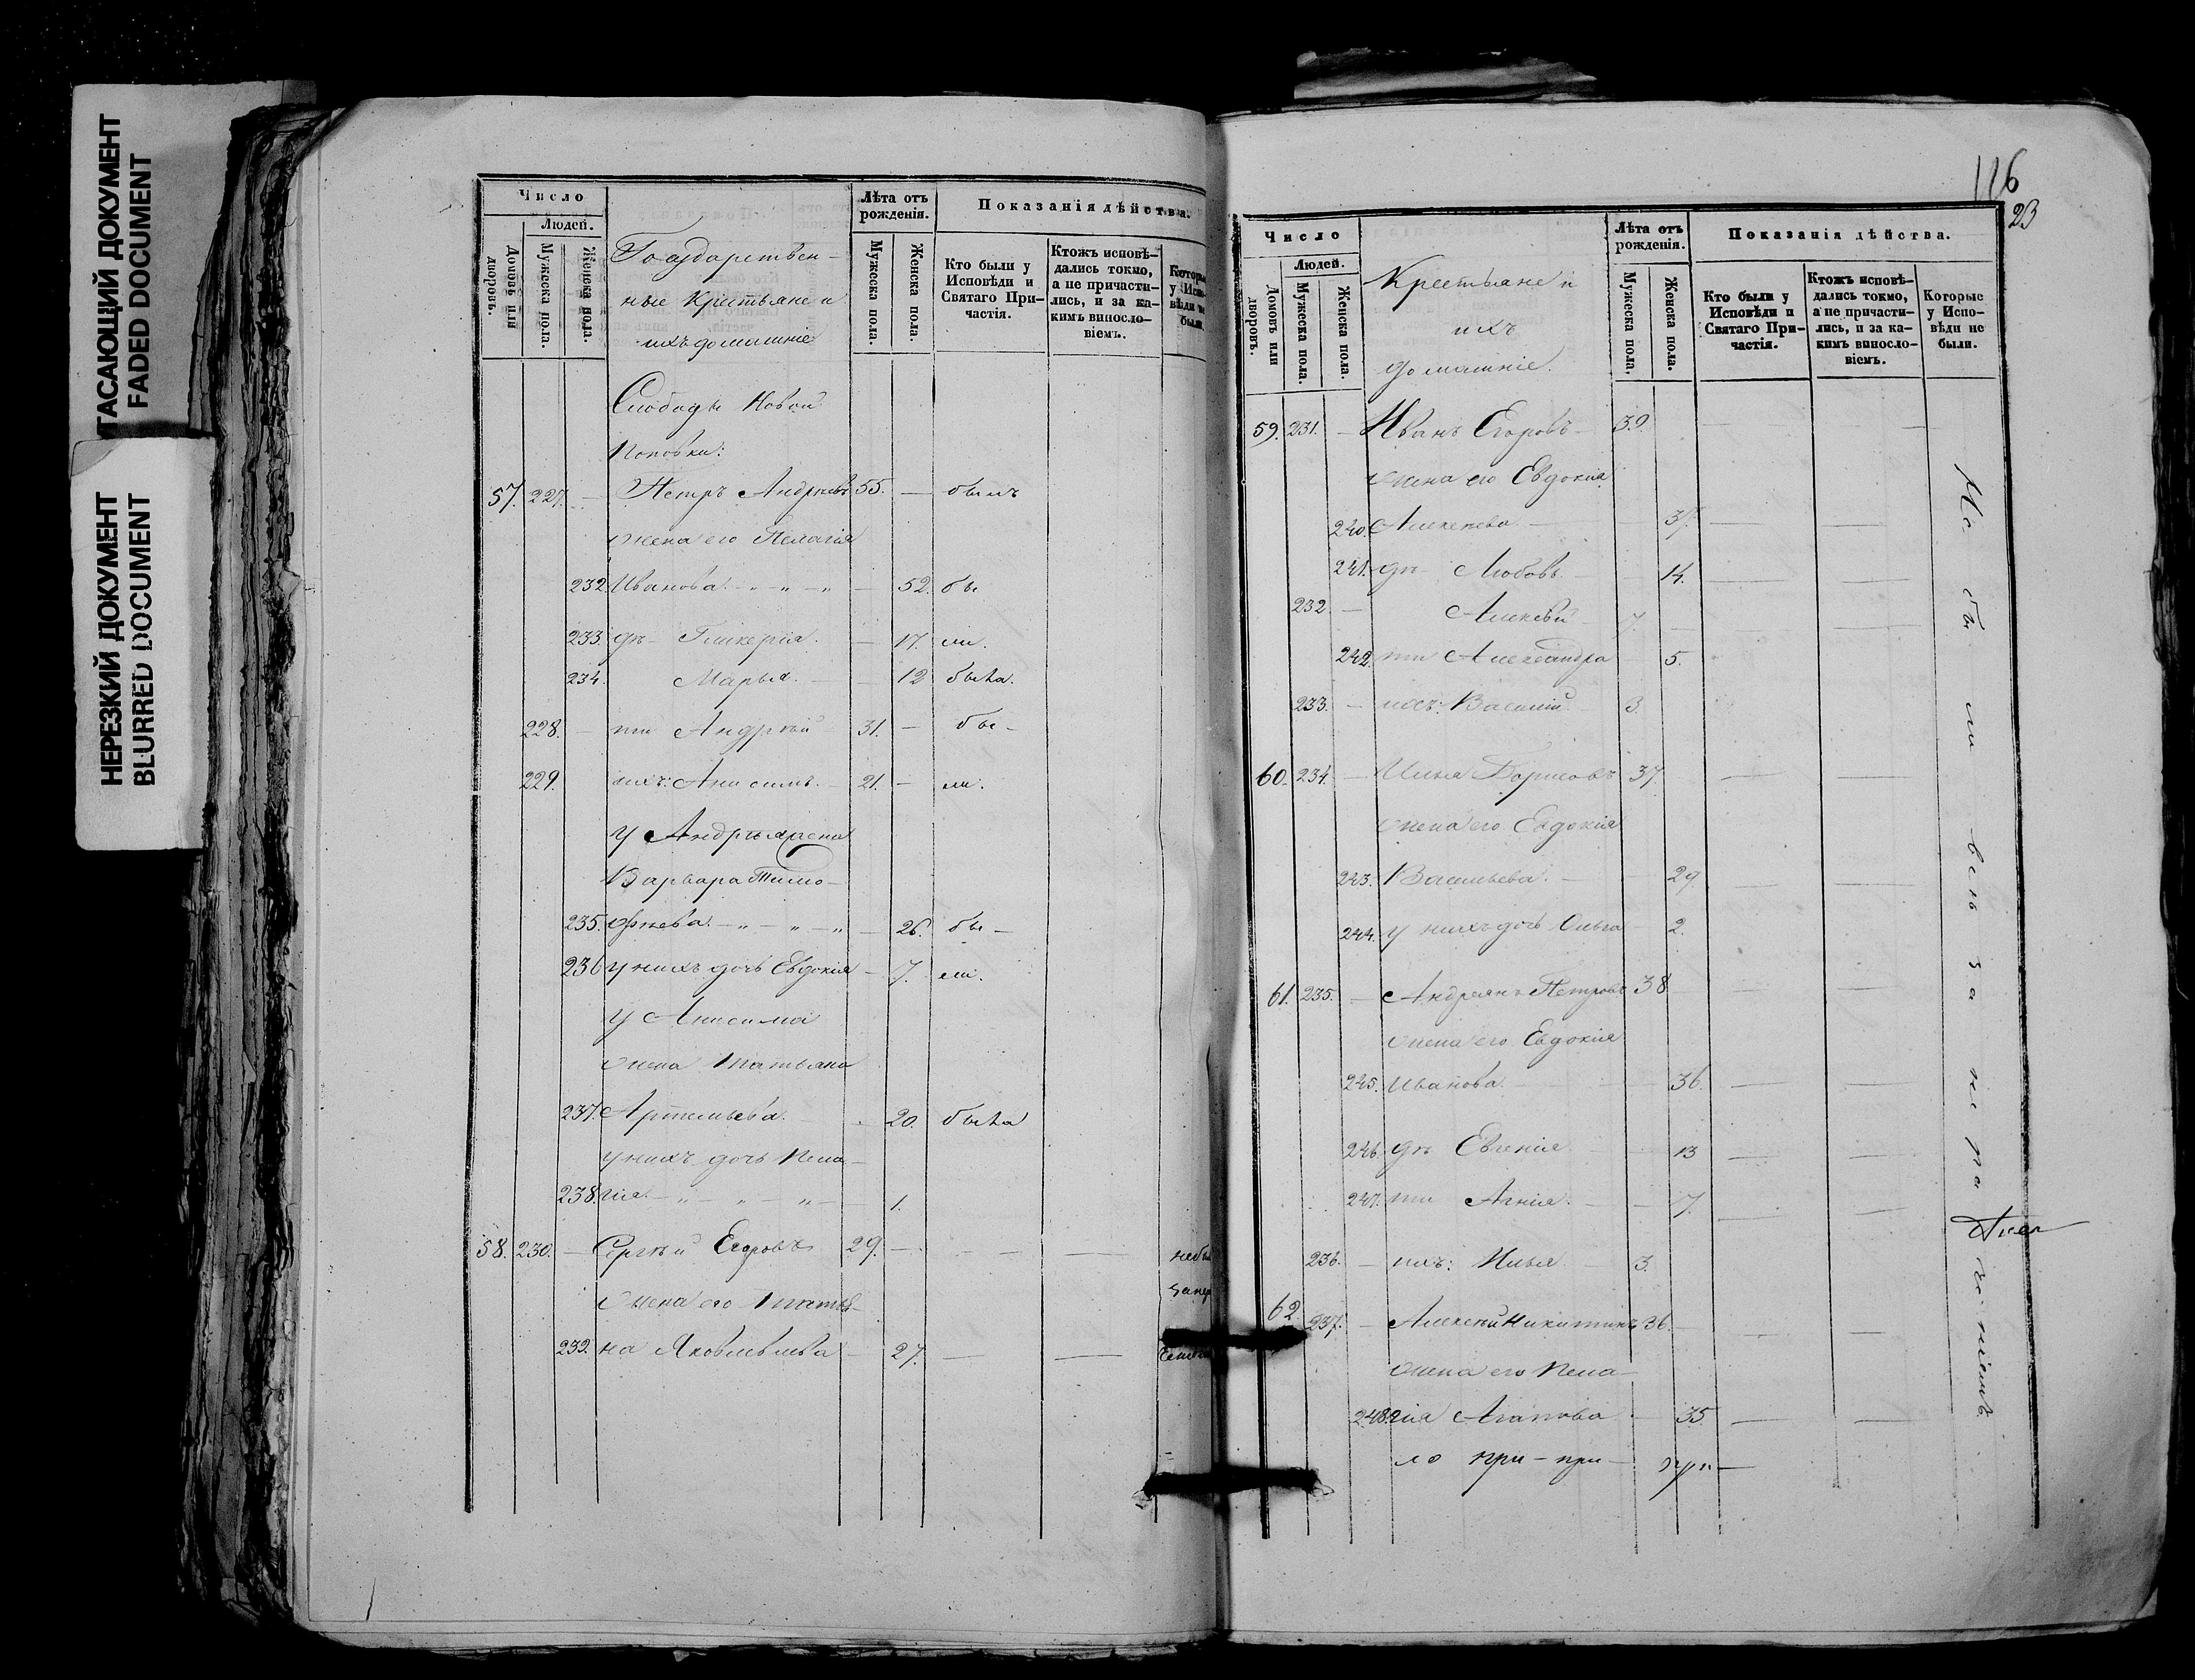 УГАСАЮЩИЙ ДОКУМЕНТ
FADED DOCUMENT
НЕРЕЗКИЙ ДОКУМЕНТ
BLURRED DOCUMENT
Число
Людей.
Домовъ или дворовъ.
Мужеска пола.
Женска пола.
Государствен-
ные Крестьяне и
ихъ домашніе
Лѣта отъ рожденія.
Мужеска пола.
Женска пола.
Показанія дѣйства.
Кто были у Исповѣди и Святаго При-частія.
Ктожъ исповѣ-дались токмо, а не причасти-лись, и за ка-кимъ винослo-віемъ.
Которые у Испо-вѣди не были.
Слободы Новой
Поповки:
57. 227. — Петръ Андреевъ 55. — былъ
жена его Пелагія
232. Иванова — 52. бы
233. дѣ- Гликерія. — 17. ли.
234. Марья. — 12 была.
228. — ти Андрей 31. — бы-
229. ихъ: Анисимъ. 21. — ли.
У Андрея жена
Варвара Тимо-
235. фѣева — 26. бы-
236 у нихъ дочь Евдокія — 7. ли.
У Анисима
жена Татьяна
237. Артемьева. 20. была
у нихъ дочь Пела-
238. гія — 1.
58. 230. — Сергѣй Егоровъ 29. — — —
жена его Татья-
239. на Яковлева — 27. — —
116
23
Число
Людей.
Домовъ или дворовъ.
Мужеска пола.
Женска пола.
Крестьяне и
ихъ
домашніе.
Лѣта отъ рожденія.
Мужеска пола.
Женска пола.
Показанія дѣйства.
Кто были у Исповѣди и Святаго При-частія.
Ктожъ исповѣ-дались токмо, а не причасти-лись, и за ка-кимъ винослo-віемъ.
Которые у Испо-вѣди не были.
59. 231. — Иванъ Егоровъ 39.
жена его Евдокія
240. Алексѣева — 37. — —
241. дѣ- Любовь — 14. — —
232 — Алексѣй 7. — —
242. ти Александра — 5.
233. — ихъ: Василій 3.
60. 234. — Илья Борисовъ 37. — —
жена его Евдокія
243. Васильева. — 29 — —
244. у нихъ дочь Ольга — 2.
61. 235. — Андреянъ Петровъ 38
жена его Евдокія
245. Иванова. 36. — —
246. дѣ Евгенія — 13 — —
247. ти Агнія. — 7. — —
236. — ихъ: Илья — 3.
62 237. — Алексѣй Никитинъ 36. —
жена его Пела-
248. гія Агапова — 35 — —
ло при-при- при-
Не были всѣ за нераченіемъ.